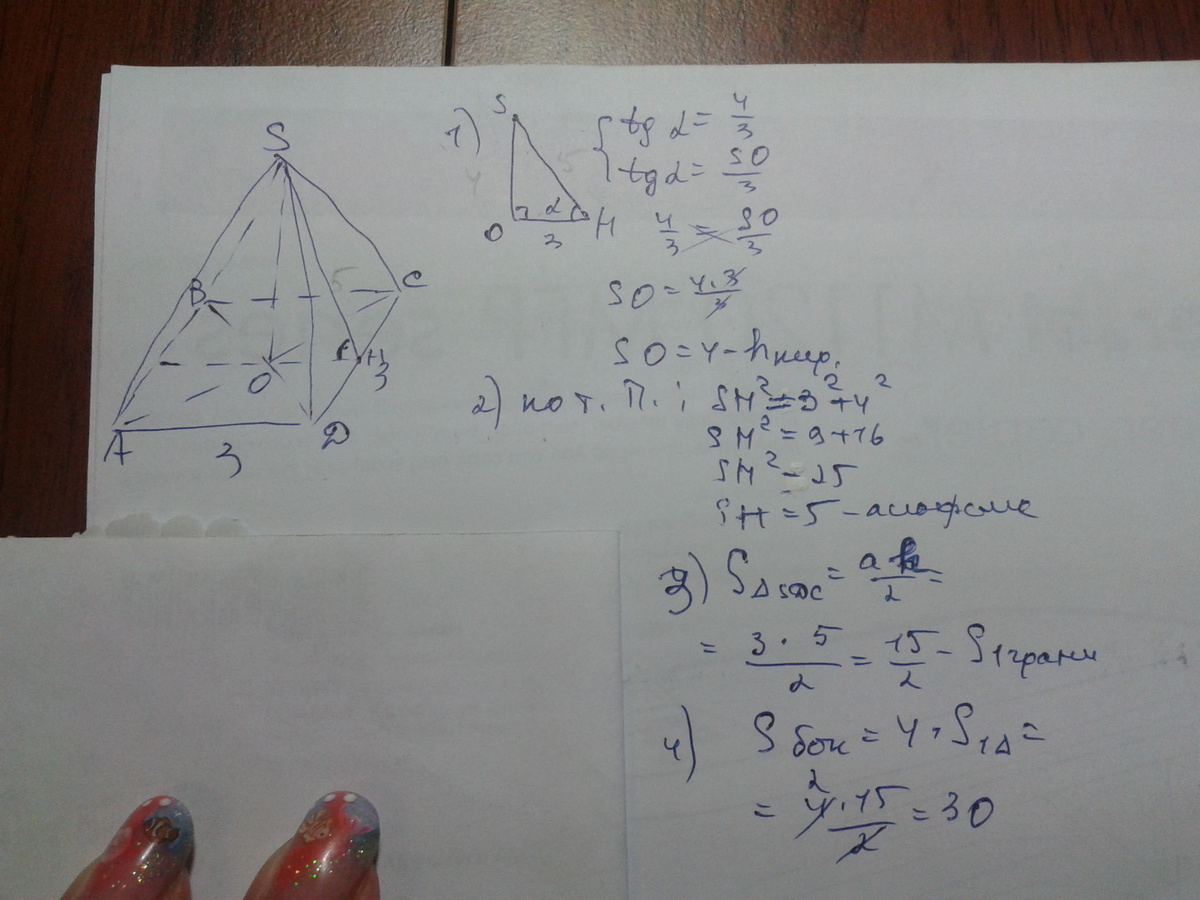 S
B
C
O
H
3
A
3
D
1)
S
O
3
H
α
tg α = 4/3
tg α = SO/3
4/3 = SO/3
SO = 4·3/3
SO = 4 - h пир.
2) по т. П.; SH² = 3² + 4²
SH² = 9 + 16
SH² = 25
SH = 5 - апофема
3) S△SDC = ah/2 =
= 3 · 5/2 = 15/2 - S1 грани
4) Sбок = 4 · S1△ =
= 4 · 15/2 = 30